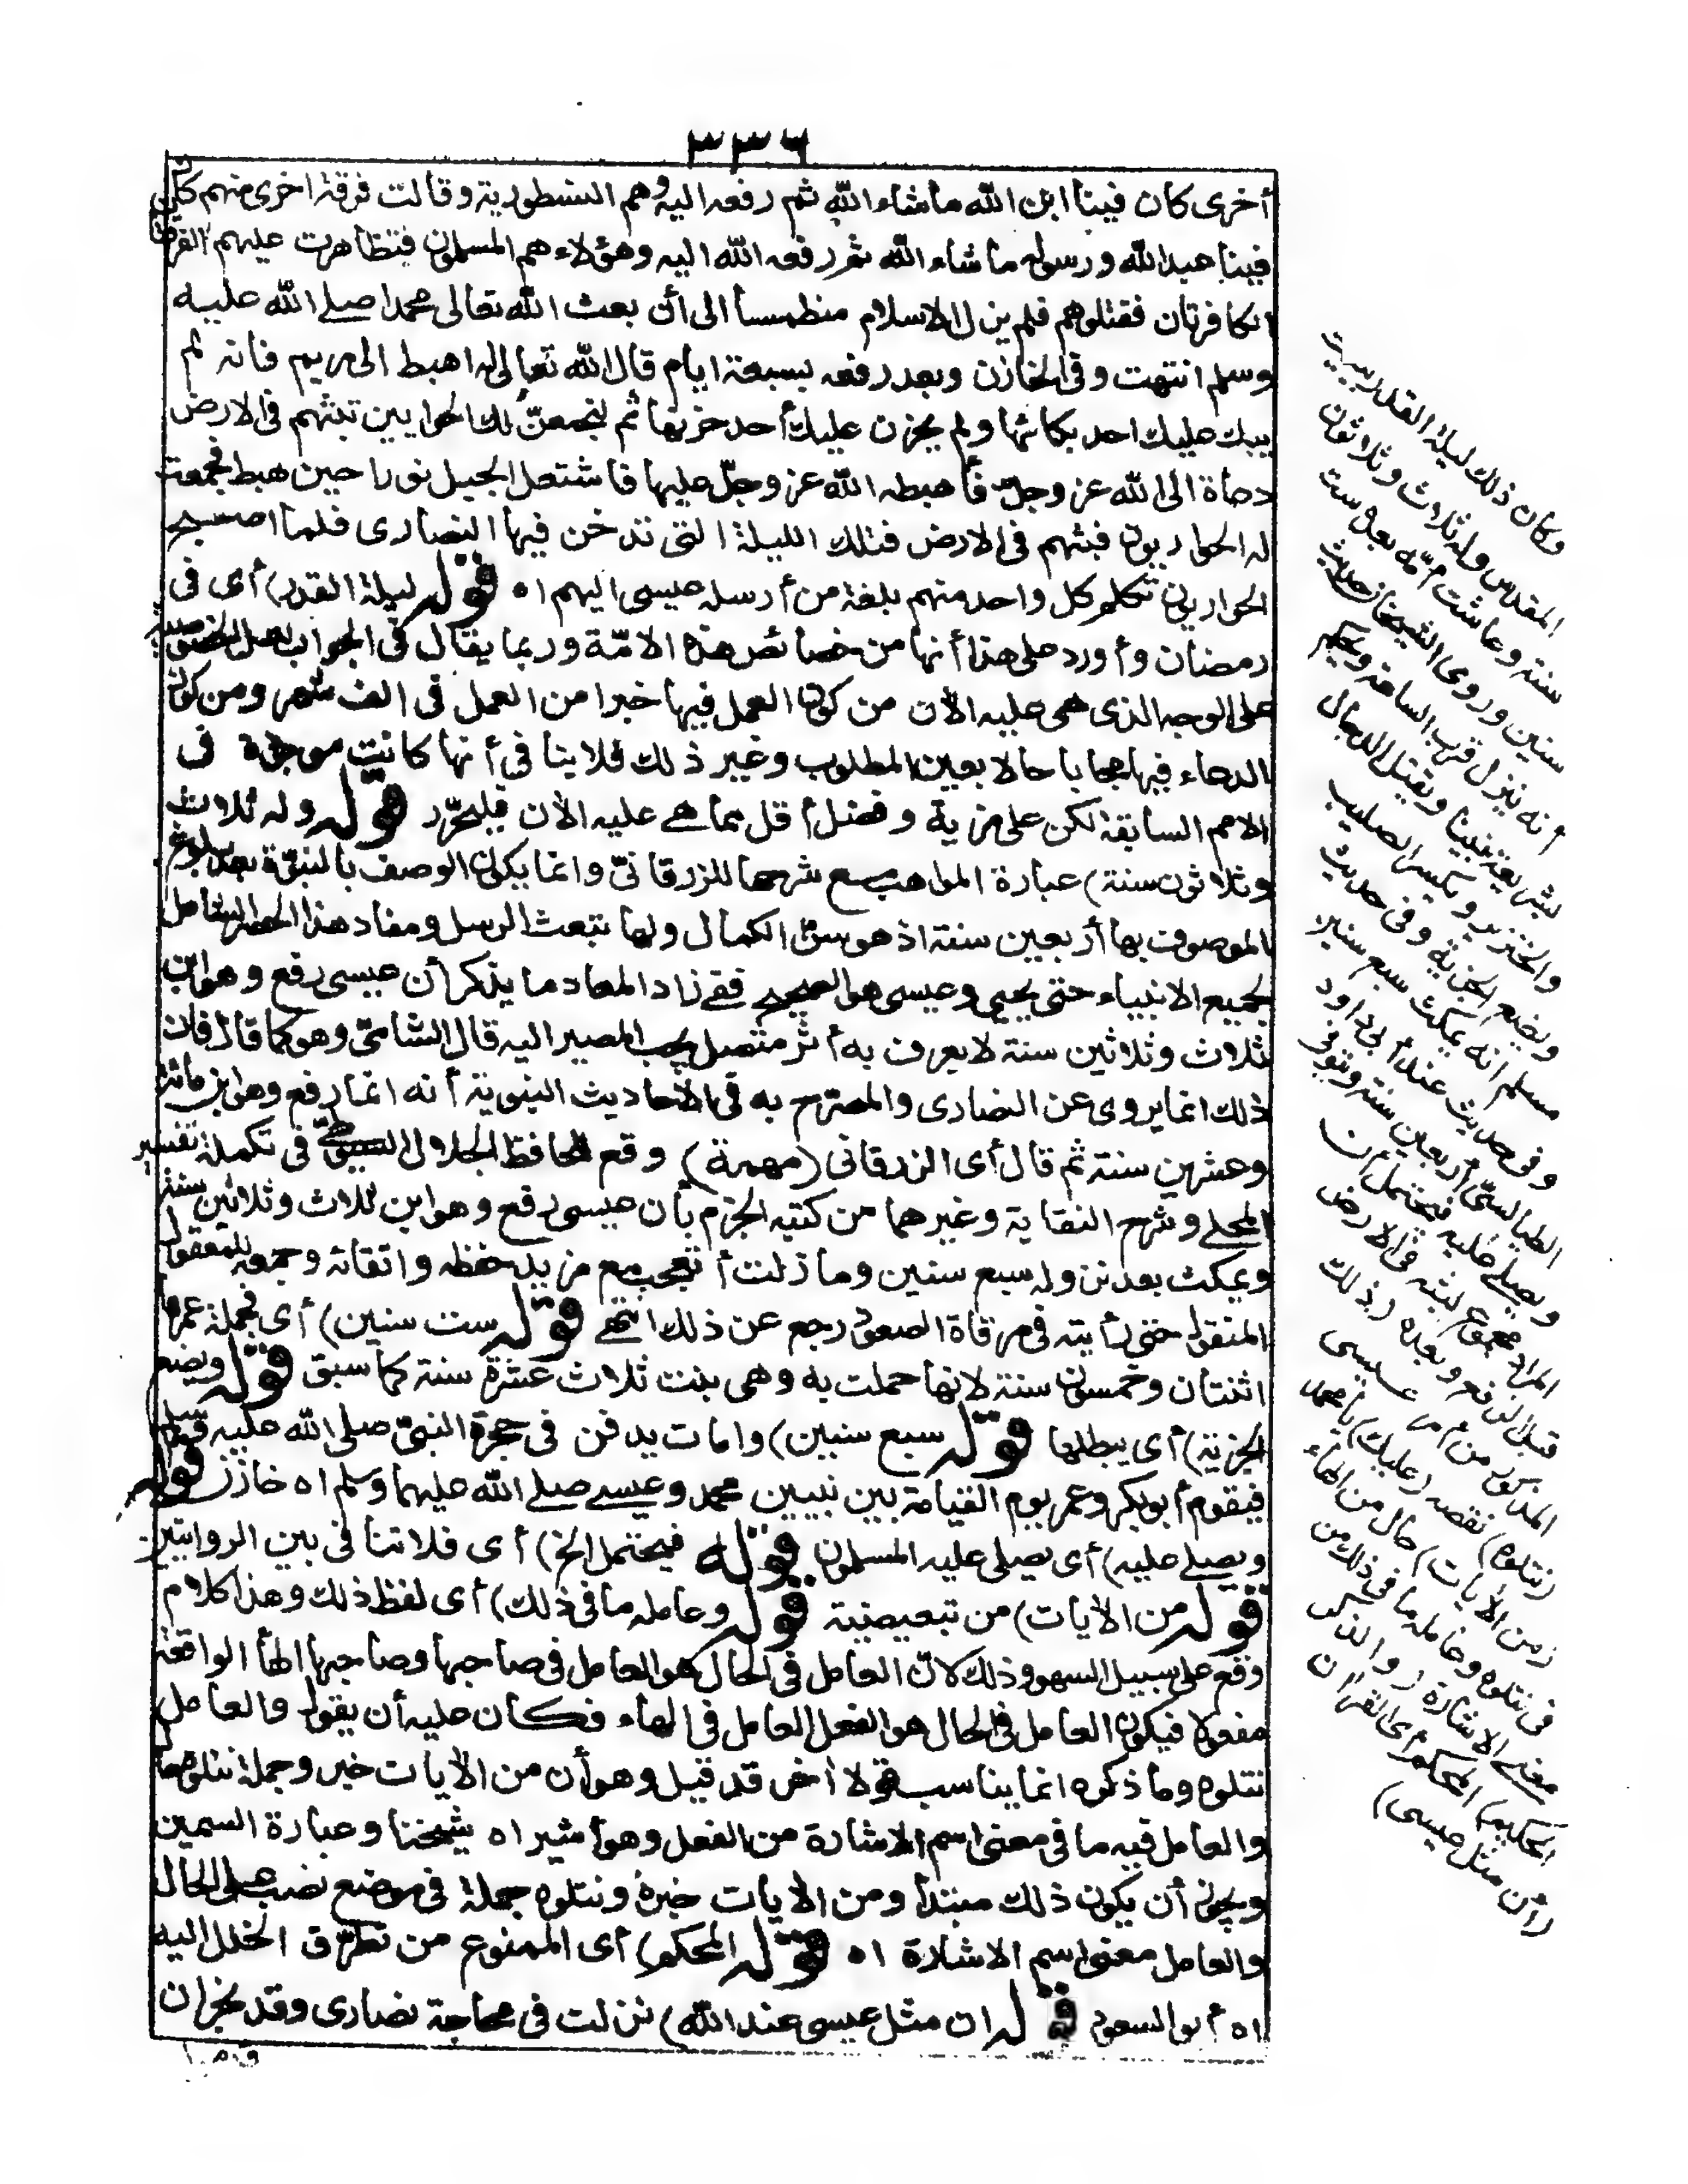 ٣٣٦
أخرى كان فينا ابن الله ما شاء الله ثم رفعه اليه وهم النسطورية وقالت فرقة اخرى منهم كان
فينا عبد الله ورسوله ما شاء الله ثم رفعه الله اليه وهؤلاء هم المسلمون فتظاهرت عليهم الفرقتان
الكافرتان فقتلوهم فلم يزل الاسلام منطمسا الى أن بعث الله تعالى محمدا صلى الله عليه
وسلم انتهت وفى الخازن وبعد رفعه بسبعة ايام قال الله تعالى له اهبط الى مريم فانه لم
يبك عليك احد بكائها ولم يحزن عليك أحد حزنها ثم لتجمعن لك الحواريين تبثهم فى الارض
دعاة الى الله عز وجل فأهبطه الله عز وجل عليها فاشتعل الجبل نورا حين هبط فجمعت
له الحواريون فبثهم فى الارض فتلك الليلة التى تدخن فيها النصارى فلما اصبح
الحواريون تكلم كل واحد منهم بلغة من أرسله عيسى اليهم اه قوله ليلة القدر) أى فى
رمضان وأورد على هذا أنها من خصائص هذه الامّة وربما يقال فى الجواب لعل الخصوصية
على الوجه الذى هى عليه الآن من كون العمل فيها خيرا من العمل فى الف شهر ومن كون
الدعاء فيها مجابا حالا بعين المطلوب وغير ذلك فلا ينافى أنها كانت موجودة فى
الامم السابقة لكن على مزية وفضل أقل مما هى عليه الآن فليحرّر قوله وله ثلاث
وثلاثون سنة) عبارة المواهب مع شرحها للزرقانىّ وانما يكون الوصف بالنبوّة بعد بلوغ
الموصوف بها أربعين سنة اذ هو سن الكمال ولها تبعث الرسل ومفاد هذا الحصر الشامل
لجميع الانبياء حتى يحيى وعيسى هو الصحيح ففى زاد المعاد ما يذكر أن عيسى رفع وهو ابن
ثلاث وثلاثين سنة لا يعرف به أثر متصل يجب المصير اليه قال الشامىّ وهو كما قال فان
ذلك انما يروى عن النصارى والمصرّح به فى الاحاديث النبوية أنه انما رفع وهو ابن مائة
وعشرين سنة ثم قال أى الزرقانى (مهمة) وقع للحافظ الجلال السيوطىّ فى تكملة تفسير
المحلى وشرح النقاية وغيرهما من كتبه الجزم بأن عيسى رفع وهو ابن ثلاث وثلاثين سنة
ويمكث بعد نزوله سبع سنين وما زلت أتعجب مع مزيد حفظه واتقانه وجمعه للمعقول
المنقول حتى رأيته فى مرقاة الصعود رجع عن ذلك انتهى قوله ست سنين) أى فجملة عمرها
اثنتان وخمسون سنة لانها حملت به وهى بنت ثلاث عشرة سنة كما سبق قوله ويضع
الجزية) أى يبطلها قوله سبع سنين) واذا مات يدفن فى حجرة النبىّ صلى الله عليه وسلم
فيقوم أبو بكر وعمر يوم القيامة بين نبيين محمد وعيسى صلى الله عليهما وسلم اه خازن قوله
ويصلى عليه) أى يصلى عليه المسلمون قوله فيحتمل الخ) أى فلا تنافى بين الروايتين
قوله من الآيات) من تبعيضية قوله وعامله ما فى ذلك) أى لفظ ذلك وهذا كلام
وقع على سبيل السهو وذلك لانّ العامل فى الحال هو العامل فى صاحبها وصاحبها الهاء الواقعة
مفعولا فيكون العامل فى الحال هو الفعل العامل فى الهاء فكان عليه أن يقول والعامل
نتلوه وما ذكره انما يناسب قولا آخر قد قيل وهو أن من الآيات خبر وجملة نتلوه حال
والعامل فيه ما فى معنى اسم الاشارة من الفعل وهو أشير اه شيخنا وعبارة السمين
ويجوز أن يكون ذلك مبتدأ ومن الآيات خبره ونتلوه جملة فى موضع نصب على الحال
والعامل معنى اسم الاشارة اه قوله المحكم) أى الممنوع من تطرّق الخلل اليه
اه أبو السعود قوله ان مثل عيسى عند الله) نزلت فى محاجة نصارى وفد نجران
وكان ذلك ليلة القدر ببيت
المقدس وله ثلاث وثلاثون
سنة وعاشت أمّه بعده ست
سنين وروى الشيخان حديث
أنه ينزل قرب الساعة ويحكم
بشريعة نبينا ويقتل الدجال
والخنزير ويكسر الصليب
ويضع الجزية وفى حديث
مسلم انه يمكث سبع سنين
وفى حديث عند أبى داود
الطيالسىّ أربعين سنة ويتوفى
ويصلى عليه فيحتمل أن
المراد مجموع لبثه فى الارض
قبل الرفع وبعده (ذلك)
المذكور من أمر عيسى
(نتلوه) نقصه (عليك) يا محمد
(من الآيات) حال من الهاء
فى نتلوه وعامله ما فى ذلك من
معنى الاشارة (والذكر
الحكيم) المحكم أى القرآن
(ان مثل عيسى)